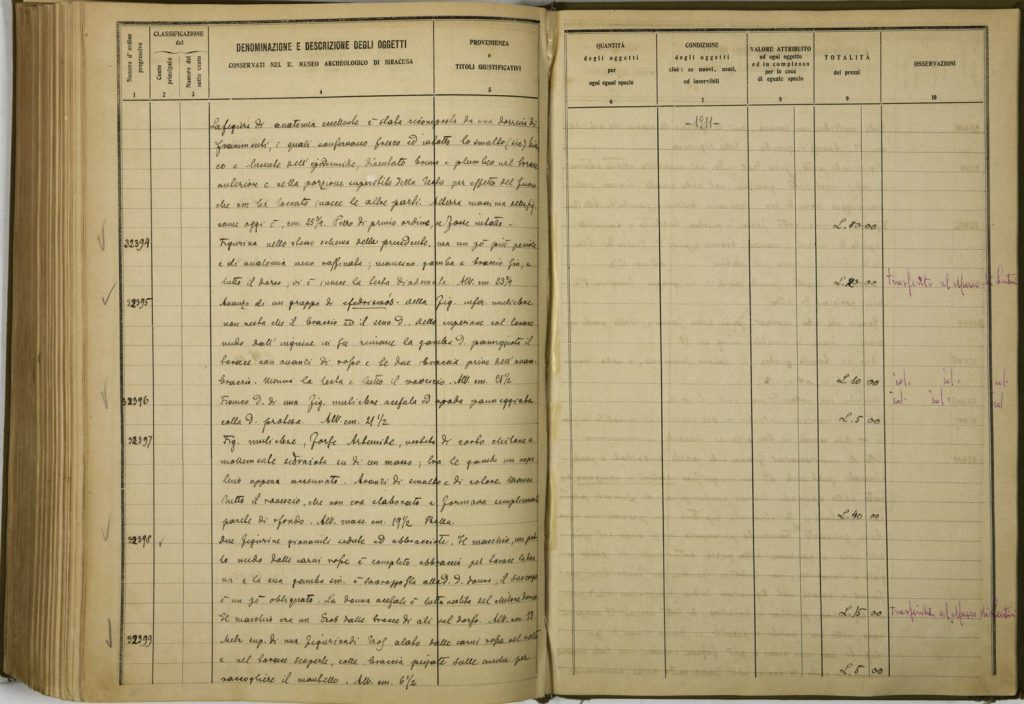 Numero d'ordine progressivo
CLASSIFICAZIONE del
Conto principale
Numero del sotto conto
DENOMINAZIONE E DESCRIZIONE DEGLI OGGETTI
CONSERVATI NEL R. MUSEO ARCHEOLOGICO DI SIRACUSA
PROVENIENZA
e
TITOLI GIUSTIFICATIVI
1 2 3 4 5
La figura di anatomia eccellente è stata ricomposta da una dozzina di
frammenti, i quali conservano fresco ed intatto lo smalto (sic) bian
co e laccato dell'epidermide, diventato bruno e plumbeo nel torace
anteriore e nella porzione superstite della testa per effetto del fuoco
che non ha toccato invece le altre parti. Altezza massima della fig.
come oggi è, cm. 25¾. Pezzo di primo ordine, se fosse intatto -
32394
Figurina nello stesso schema della precedente, ma un pò più piccola
e di anatomia meno raffinata; mancano gamba e braccio sin. e
tutto il dorso; vi è invece la testa diademata. Alt. cm. 23¾
32395
Avanzo di un gruppo di efedrismós. Della fig. infer. muliebre
non resta che il braccio ed il seno D. della superiore col torace
nudo dall'inguine in su rimane la gamba D. panneggiata il
torace con avanzi di rosso e le due braccia prive dell'avam-
braccio. Manca la testa e tutto il rovescio. Alt. cm. 21½
32396
Tronco D. di una fig. muliebre acefala ed apoda panneggiata
colla D. protesa Alt. cm. 21 1/2
32397
Fig. muliebre, forse Artemide, vestita di corto chitone e
mollemente sdraiata su di un masso; tra le gambe un
appena accennato. Avanzi di smalto e di colore. Manca
tutto il rovescio, che non era elaborato e formava semplicemente
parete di sfondo. Alt. mass. cm. 19½ Bella.
32398
Due figurine giovanili sedute ed abbracciate. Il maschio, un put
to nudo dalle carni rosse è completo abbraccia per torace la don
na e la sua gamba sin. è sovrapposta alla D. d. donna; il suo corpo
è un pò obliquato. La donna acefala è tutta vestita del chitone dorico
Il maschio era un Eros dalle tracce di ali sul dorso. Alt. cm. 13
32399
Metà sup. di una figurina di Eros alato dalle carni rosse nel volto
e nel torace scoperte, colle braccia piegate sulle anche per
raccogliere il mantello. Alt. cm. 6½
QUANTITÀ
degli oggetti
per
ogni egual specie
CONDIZIONE
degli oggetti
cioè: se nuovi, usati,
od inservibili
VALORE ATTRIBUITO
ad ogni oggetto
ed in complesso
per le cose
di eguale specie
TOTALITÀ
dei prezzi
OSSERVAZIONI
6 7 8 9 10
-1911-
L. 80 00
L. 20 00 Trasferito al Museo di Lentini
L. 10 00 id. id. id.
id. id. id
L. 5 00
L. 40 00
L. 15 00 Trasferita al Museo di Lentini
L. 5 00